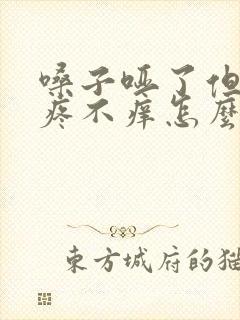 嗓子哑了但
疼不痒怎麼
東方城府的猫